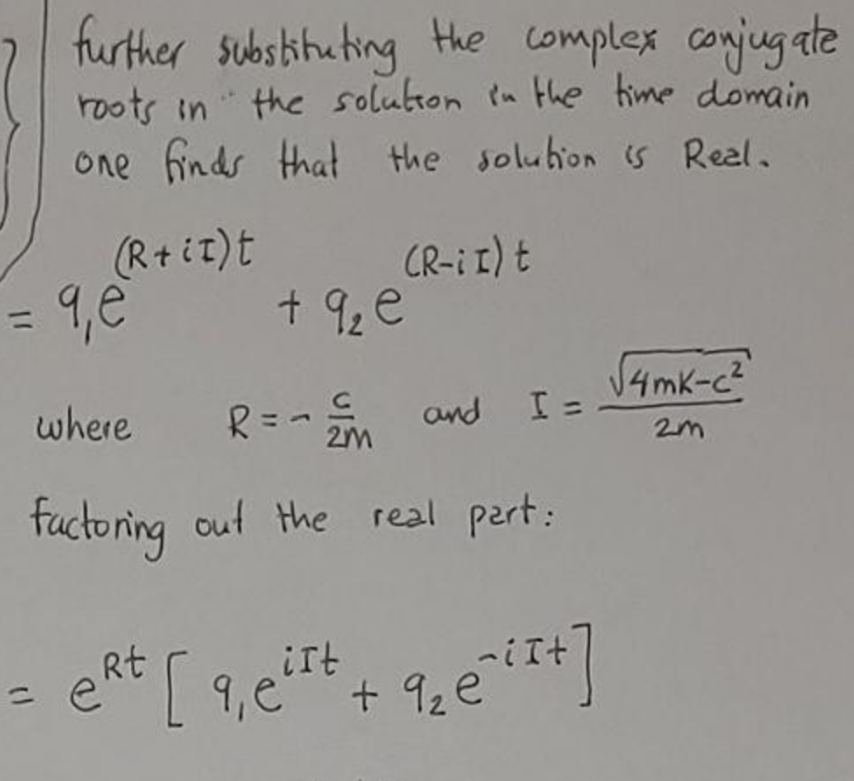 further substituting the complex conjugate
roots in the solution in the time domain
one finds that the solution is Real.
= q₁e^{(R+iI)t} + q₂e^{(R-iI)t}
where R = - c/2m and I = √(4mK-c²)/2m
factoring out the real part:
= e^{Rt} [ q₁e^{iIt} + q₂e^{-iIt} ]